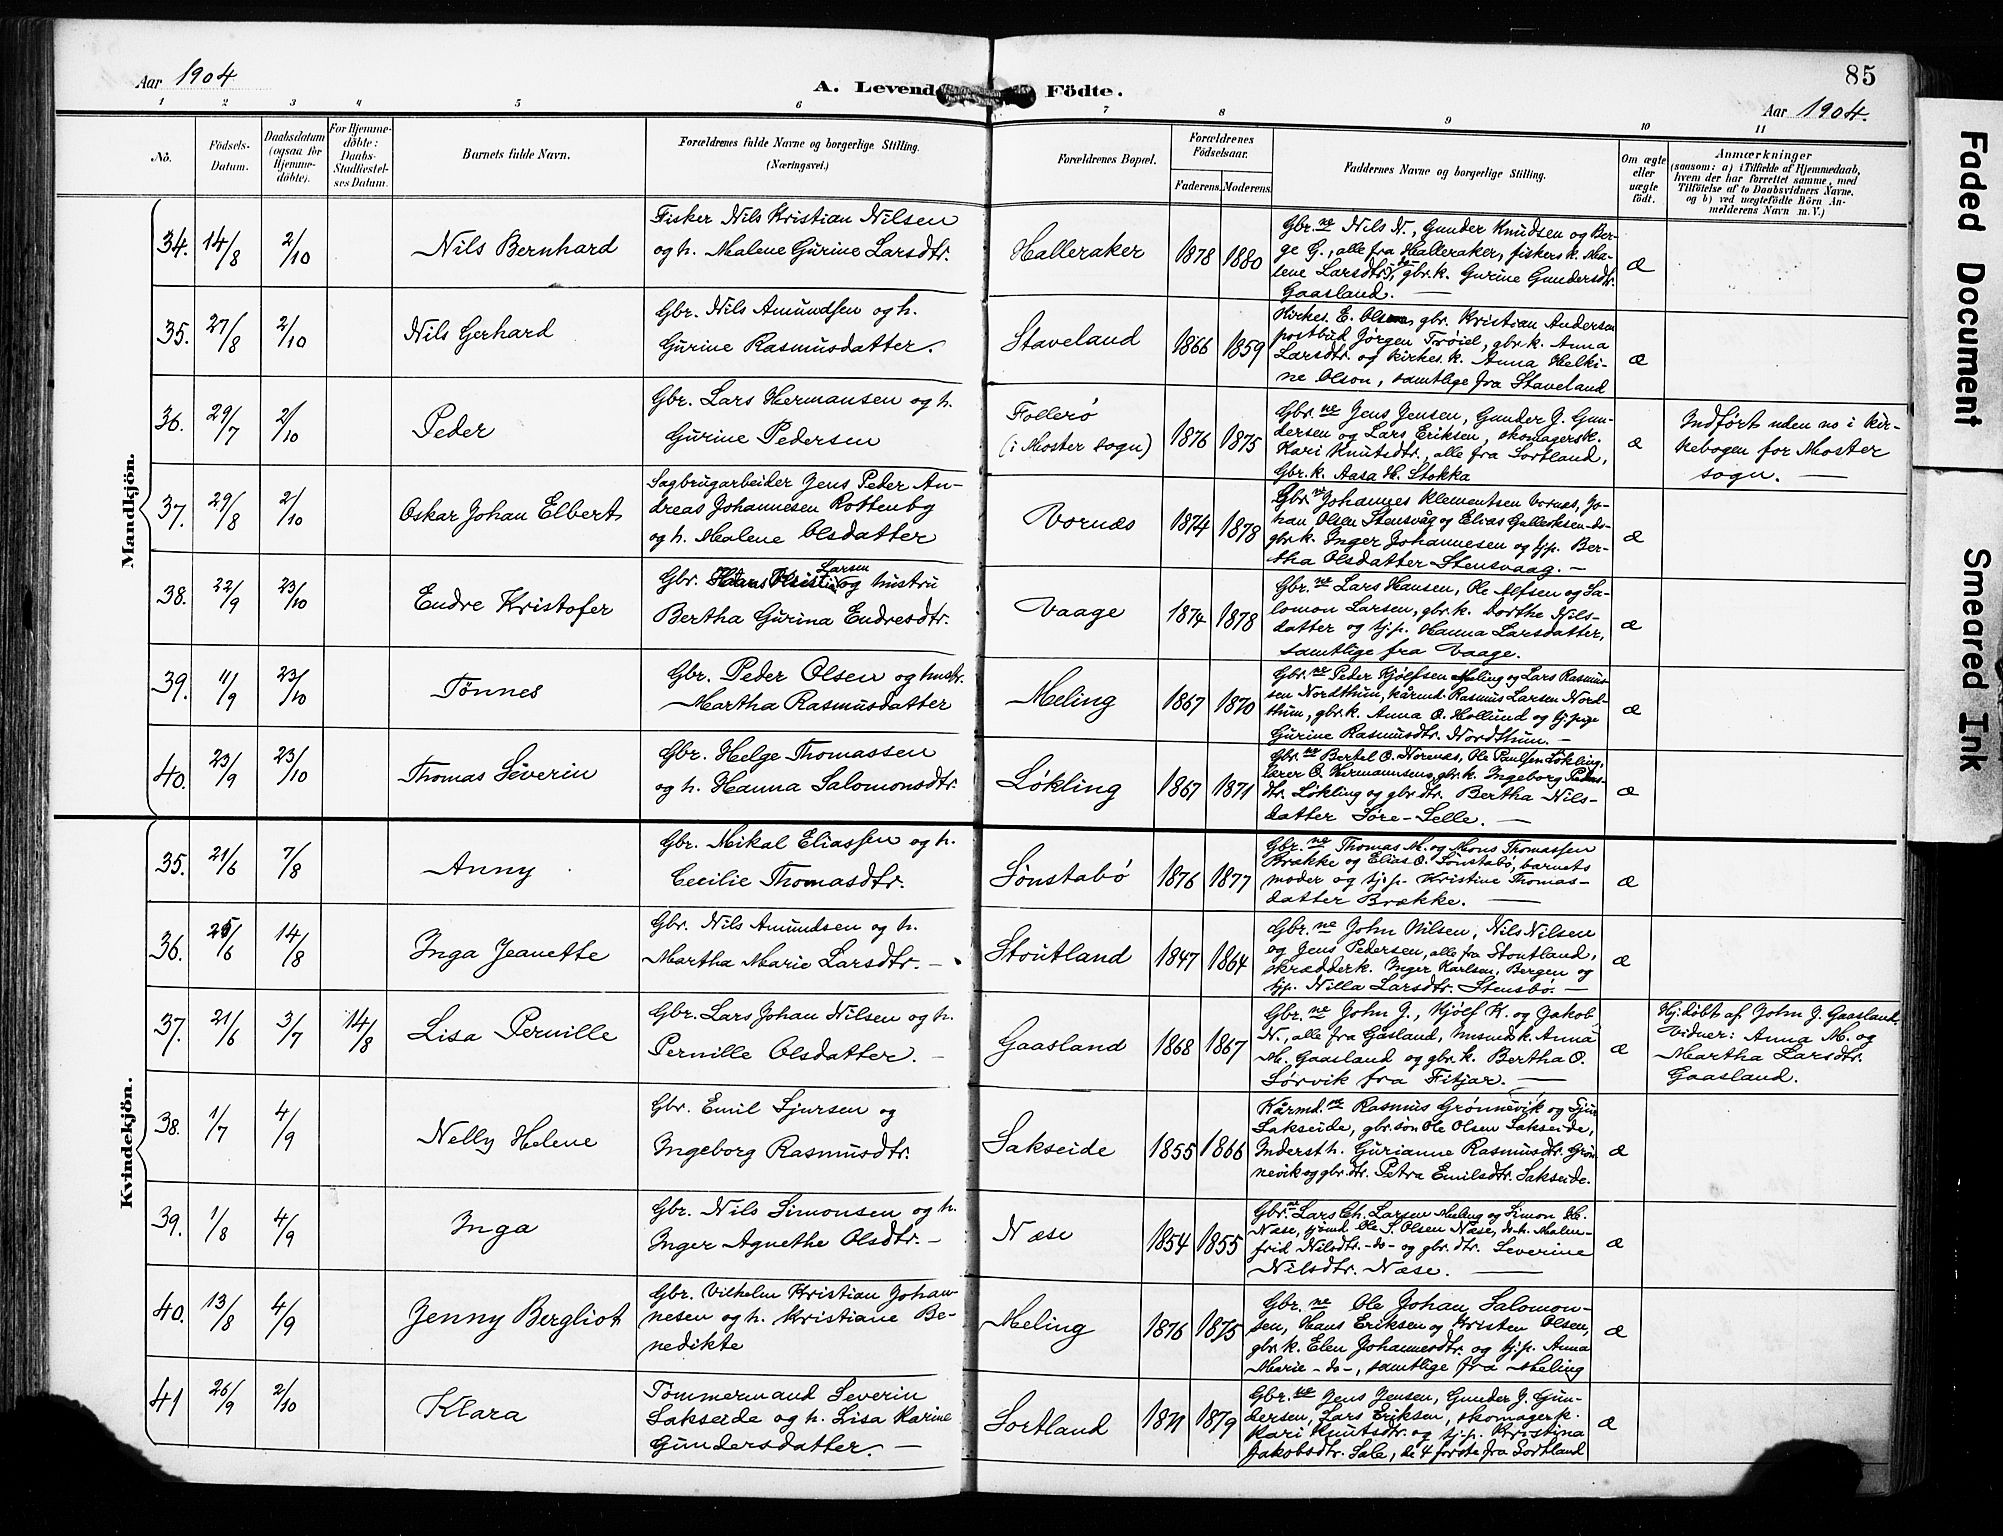 Aar 1904
A. Levend Födte.
85
Aar 1904.
1 2 3 4 5 6 7 8 9 10 11
No.
Födsels-
Datum.
Daabsdatum
(ogsaa för
Hjemme-
döbte).
For Hjemme-
döbte:
Daabs-
Stadfæstel-
ses Datum.
Barnets fulde Navn.
Forældrenes fulde Navne og borgerlige Stilling.
(Næringsvei.)
Forældrenes Bopæl.
Forældrenes
Födselsaar.
Faderens. Moderens.
Faddernes Navne og borgerlige Stilling.
Om ægte
eller
uægte
født.
Anmærkninger
(saasom: a) i Tilfælde af Hjemmedaab,
hvem der har forrettet samme, med
Tilföielse af to Daabsvidners Navne,
og b) ved uægtefödte Börn An-
melderens Navn m. V.)
Mandkjön.
34. 14/8 2/10 Nils Bernhard
Fisker Nils Kristian Nilsen
og h. Malene Gurine Larsdtr.
Halleraker 1878 1880
Gbr.ne Nils N., Gunder Knudsen og Ber-
ge G., alle fra Halleraker, fiskersk. Ma-
lene Larsdtr, gbr.k. Gurine Gundersdtr.
Gaasland. —
æ
35. 27/8 2/10 Nils Gerhard
Gbr. Nils Amundsen og h.
Gurine Rasmusdatter.
Staveland 1866 1859
Kirkes. E. Olsen, gbr. Kristian Andersen
postbud Jørgen Trøiel, gbr.k. Anna
Larsdtr. og kirkes.k. Anna Helki-
ne Olson, samtlige fra Staveland
æ
36. 29/7 2/10 Peder
Gbr. Lars Hermansen og h.
Gurine Pedersen
Follerø
(i Moster sogn) 1876 1875
Gbr.ne Jens Jensen, Gunder J. Gun-
dersen og Lars Eriksen, skomagersk.
Kari Knutsdtr., alle fra Sortland,
Gbr.k. Aasa H. Stokka
æ
Indført uden no i kir-
kebogen for Moster
sogn. —
37. 29/8 2/10 Oskar Johan Elbert
Sagbrugarbeider Jens Peder An-
dreas Johannesen Rottenby
og h. Malene Olsdatter
Vornæs 1874 1878
Gbr.ne Johannes Klementsen Vornæs, Jo-
han Olsen Stensvåg og Elias -do-
gbr.k. Inger Johannesen og tj.p. Ber-
tha Olsdatter Stensvaag. —
æ
38. 22/9 23/10 Endre Kristofer
Gbr. Larsen og hustru
Bertha Gurina Endresdtr.
Vaage 1874 1878
Gbr.ne Lars Hansen, Ole Alfsen og Sa-
lomon Larsen, gbr.k. Dorthe Nils-
datter og tj.p. Hanna Larsdatter,
samtlige fra Vaage.
æ
39. 11/9 23/10 Tønnes
Gbr. Peder Olsen og hustr.
Martha Rasmusdatter
Meling 1867 1870
Gbr.ne Peder Kjølfsen Meling og Lars Rasmus-
sen Nordthun, kårmd. Rasmus Larsen Nord-
thun, gbr.k. Anna O. Hollund og tj.pige
Gurine Rasmusdtr. Nordthun. —
æ
40. 23/9 23/10 Thomas Severin
Gbr. Helge Thomassen
og h. Hanna Salomonsdtr.
Løkling 1867 1871
Gbr.ne Bertel O. Norenæs, Ole Paulsen Løkling,
lærer O. Hermannsens, gbr.k. Ingeborg Peders-
dtr. Løkling og gbr.dtr. Bertha Nils-
datter Søre-Selle. —
æ
Kvindekjön.
35. 21/6 7/8 Anny
Gbr. Mikal Eliassen og h.
Cecilie Thomasdtr.
Sønstabø 1876 1877
Gbr.ne Thomas M. og Mons Thomassen
Brække og Elias O. Sønstabø, barnets
moder og tj.p. Kristine Thomas-
datter Brække. —
æ
36. 25/6 14/8 Inga Jeanette
Gbr. Nils Amundsen og h.
Martha Marie Larsdtr. —
Stoutland 1847 1864
Gbr.ne John Nilsen, Nils Nilsen
og Jens Pedersen, alle fra Stoutland,
skrædderk. Inger Karlsen, Bergen og
tj.p. Nilla Larsdtr. Stensbø. —
æ
37. 21/6 3/7 14/8 Lisa Pernille
Gbr. Lars Johan Nilsen og h.
Pernille Olsdatter. —
Gaasland 1868 1867
Gbr.ne John J., Kjølf K. og Jakob
N., alle fra Gasland, husmdk. Anna
M. Gaasland og gbr.k. Bertha O.
Sørvik fra Fitjar. —
æ
Hj.døbt af John J. Gaasland.
Vidner: Anna M. og
Martha Larsdtr.
Gaasland.
38. 1/7 4/9 Nelly Helene
Gbr. Emil Sjursen og
Ingeborg Rasmusdtr.
Sakseide 1855 1866
Kårmd.ne Rasmus Grønnevik og Sjur
Sakseide, gbr.søn Ole Olsen Sakseide,
Inderst h. Gurianne Rasmusdtr. Grøn-
nevik og gbr.dtr. Petra Emilsdtr. Sakseide.
æ
39. 1/8 4/9 Inga
Gbr. Nils Simonsen og h.
Inger Agnethe Olsdtr. —
Næse 1854 1855
Gbr.ne Lars Ch. Larsen Meling og Simon H.
Næse, Ole S. Olsen Næse, do. h. Malm-
frid Nilsdtr. -do- og gbr.dtr. Severine
Nilsdtr. Næse. —
æ
40. 13/8 4/9 Jenny Bergliot
Gbr. Vilhelm Kristian Johan-
nesen og h. Kristiane Be-
nedikte
Meling 1876 1875
Gbr.ne Ole Johan Salomon-
sen, Hans Eriksen og Kristen Olsen,
gbr.k. Elen Johannesdtr. og tj.p. Anna
Marie -do-, samtlige fra Meling
æ
41 26/9 2/10 Klara
Tømmermand Severin
Sakseide og h. Lisa Karine
Gundersdatter. —
Sortland 1871 1879
Gbr.ne Jens Jensen, Gunder J. Gun-
dersen, Lars Eriksen, skomagerk.
Kari Knutsdtr. og tj.p. Kristina
Jakobsdtr. Sale, de 4 første fra Sortland
æ
Faded Document
Smeared Ink